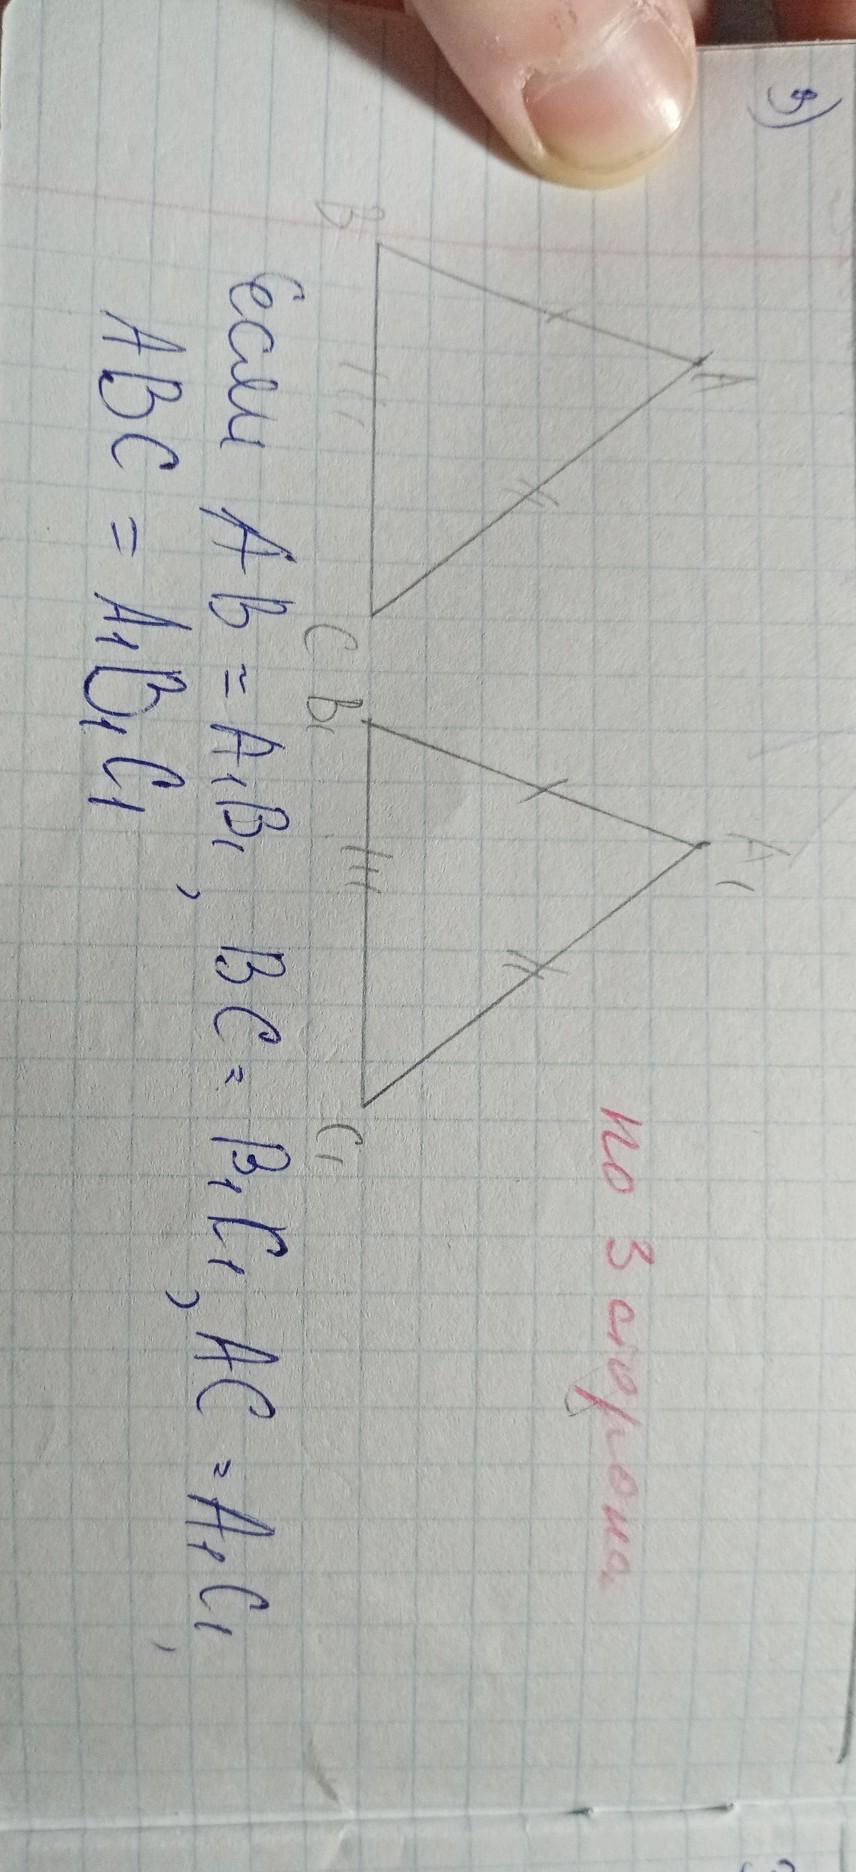 3)
по 3 сторона
A
A1
B
C
B1
C1
если AB = A1B1, BC = B1C1, AC = A1C1,
ABC = A1B1C1